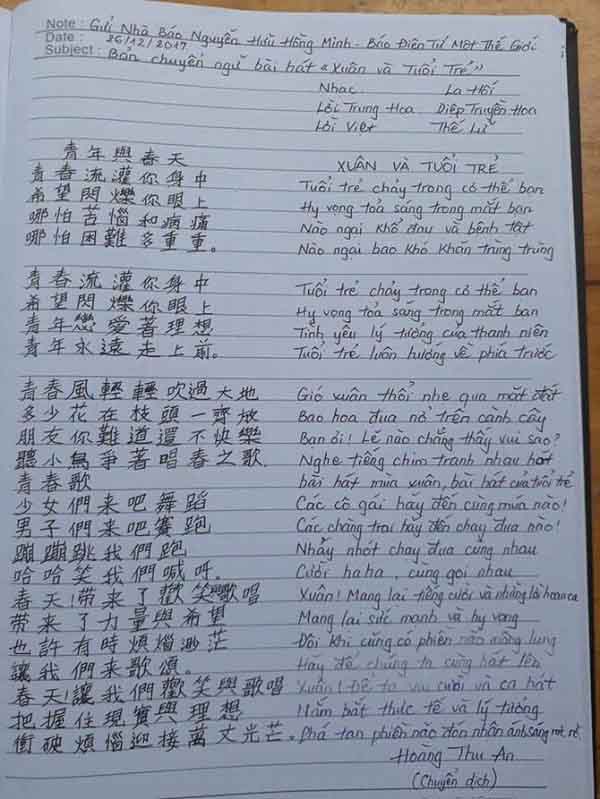 Note : Gửi Nhà Báo Nguyễn Hữu Hồng Minh - Báo Điện Tử Một Thế Giới
Date : 26/12/2017
Subject : Bản chuyển ngữ bài hát "Xuân và Tuổi Trẻ"
Nhạc La Hối
Lời Trung Hoa Diệp Truyền Hoa
Lời Việt Thế Lữ
青年與春天 XUÂN VÀ TUỔI TRẺ
青春流灌你身中 Tuổi trẻ chảy trong cơ thể bạn
希望閃爍你眼上 Hy vọng toả sáng trong mắt bạn
哪怕苦惱和病痛 Nào ngại khổ đau và bệnh tật
哪怕困難多重重。 Nào ngại bao khó khăn trùng trùng
青春流灌你身中 Tuổi trẻ chảy trong cơ thể bạn
希望閃爍你眼上 Hy vọng toả sáng trong mắt bạn
青年戀愛著理想 Tình yêu lý tưởng của thanh niên
青年永遠走上前。 Tuổi trẻ luôn hướng về phía trước
青春風輕輕吹過大地 Gió xuân thổi nhẹ qua mặt đất
多少花在枝頭一齊放 Bao hoa đua nở trên cành cây
朋友你難道還不快樂 Bạn ơi! Lẽ nào chẳng thấy vui sao?
聽小鳥爭著唱春之歌. Nghe tiếng chim tranh nhau hót
青春歌 bài hát mùa xuân, bài hát của tuổi trẻ
少女們来吧舞蹈 Các cô gái hãy đến cùng múa nào!
男子們来吧賽跑 Các chàng trai hãy đến chạy đua nào!
蹦蹦跳我們跑 Nhảy nhót chạy đua cùng nhau
哈哈笑我們喊呼. Cười haha, cùng gọi nhau
春天!帶来了歡笑歌唱 Xuân! Mang lại tiếng cười và những lời hoan ca
带来了力量與希望 Mang lại sức mạnh và hy vọng
也許有時煩惱渺茫 Đôi khi cũng có phiền não mông lung
讓我們来歌頌。 Hãy để chúng ta cùng hát lên
春天!讓我們歡笑與歌唱 Xuân! Để ta vui cười và ca hát
把握住現實與理想 Nắm bắt thực tế và lý tưởng
衝破煩惱迎接萬丈光芒。 Phá tan phiền não đón nhận ánh sáng
Hoàng Thu An
(Chuyển dịch)